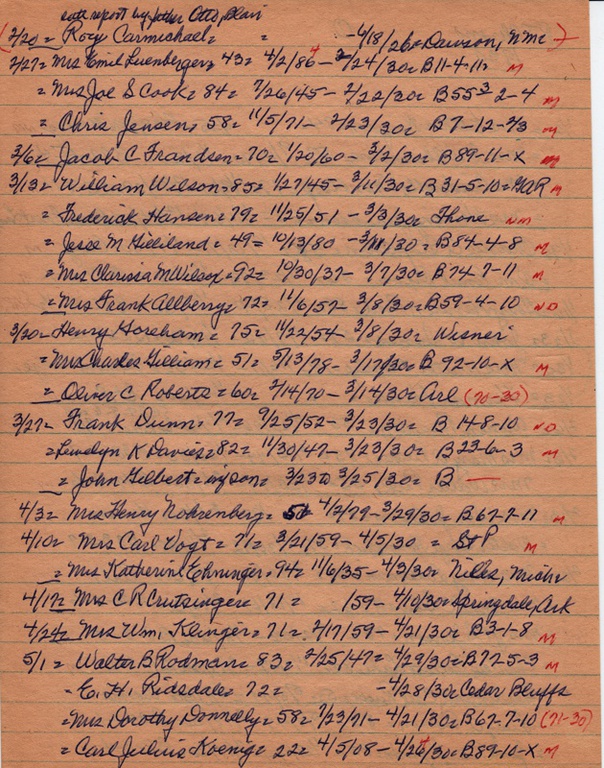 date report by father Otto, Blair
(2/20= Roy Carmichael= = -4/18/26= Dawson, Nmc)
2/27= Mrs Emil Luenberger= 43= 4/2/86 4 - 2/24/30= B11-4-11= M
= Mrs Joe S Cook= 84= 7/26/45- 2/22/30= B55 3 2-4 M
= Chris Jensen= 58= 11/5/71- 2/23/30= B7-12-2/3 M
3/6= Jacob C Frandsen= 70= 1/20/60- 3/2/30= B89-11-X M
3/13= William Wilson= 85= 1/27/45- 3/11/30= B31-5-10= GAR M
= Frederick Hansen= 79= 11/25/51- 3/3/30= Thone NM
= Jesse M Gilliland= 49= 10/13/80 - 3/ /30= B84-4-8 M
= Mrs Clarissa M Wilsox= 92= 10/30/37- 3/7/30= B74-7-11 M
= Mrs Frank Allberry= 72= 11/6/57- 3/8/30= B59-4-10 NO
3/20= Henry Goreham= 75= 11/22/54- 3/8/30= Wisner
= Mrs Charles Gilliam= 51= 5/13/78- 3/17/30= B 92-10-X M
= Oliver C Roberts= 60= 2/14/70- 3/14/30= Arl (70-30)
3/27= Frank Dunn= 77= 9/25/52- 3/23/30= B 148-10 NO
= Lewelyn K Davies= 82= 11/30/47- 3/23/30= B23-6-3 M
= John Gilbert= inf son= 3/23 to 3/25/30= B —
4/3= Mrs Henry Nohrenberg= 50 4/2/79- 3/29/30= B67-7-11 M
4/10= Mrs Carl Vogt= 71= 3/21/59- 4/5/30 = St P M
= Mrs Katherine Ehninger= 94= 11/6/35- 4/3/30= Niles, Mich=
4/17= Mrs C R Crutsinger= 71= /59- 4/10/30= Springdale, Ark
4/24= Mrs Wm. Klinger= 71= 2/17/59- 4/21/30= B3-1-8 M
5/1= Walter B Rodman= 83= 2/25/47= 4/29/30= B72-5-3 M
- E. H. Ridsdale= 72= -4/28/30= Cedar Bluffs
= Mrs Dorothy Donnelly= 58= 7/23/71- 4/21/30= B67-7-10 (71-30)
= Carl Julius Koenig= 22= 4/5/08- 4/26/30= B89-10-X M